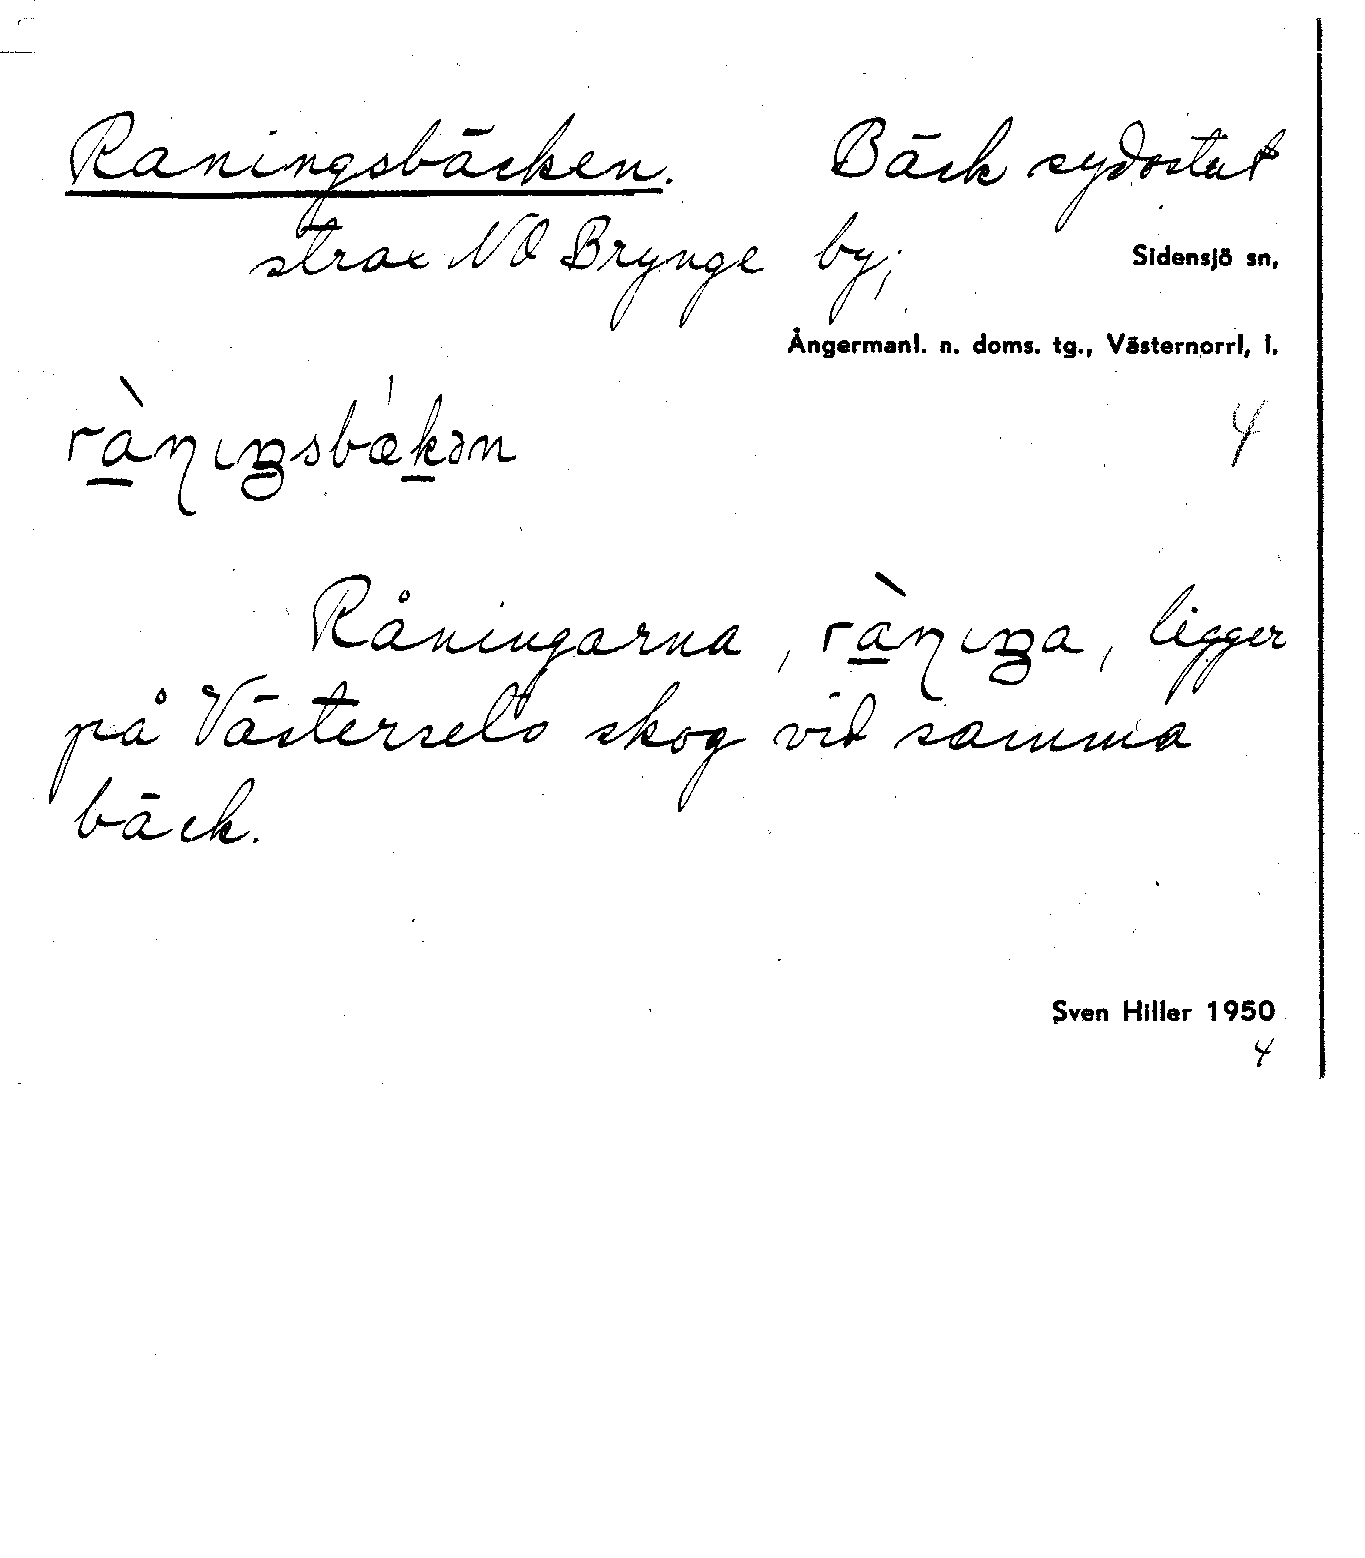 Raningsbäcken. Bäck sydostut
strax NO Brynge by;
Sidensjö sn,
Ångermanl. n. doms. tg., Västernorrl, l.
4
Råningarna, ligger
på Västersels skog vid samma
bäck.
Sven Hiller 1950
4